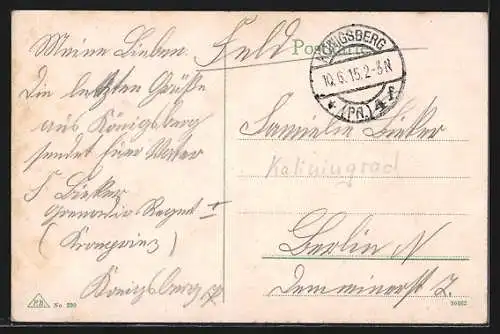 Meine Lieben.
Die letzten Grüße
aus Königsberg
sendet Euer Vater
F Lieker
Grenadier Regmt I
(Kronprinz)
Königsberg Pr
Feld Postkarte
KÖNIGSBERG
10.6.15.2-3N
* (PR.) 4
Familie Lieker
Kaliningrad
Berlin N
Demminerst 2.
No. 230